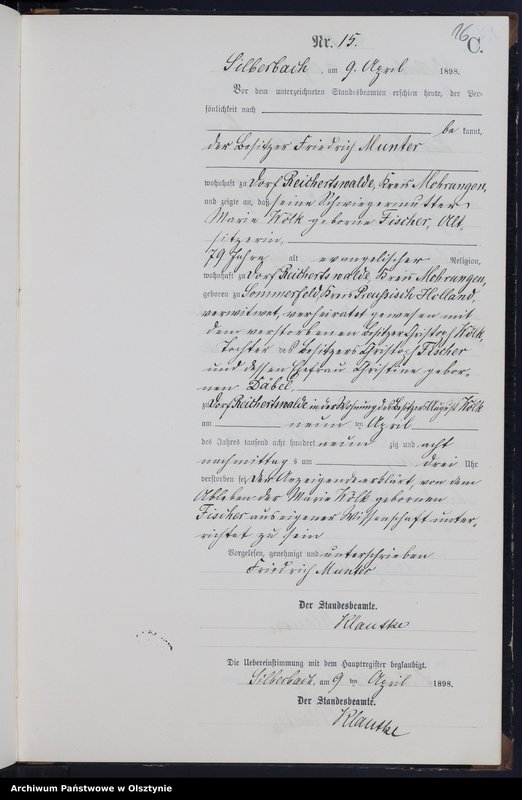 16
C.
Nr. 15.
Silberbach, am 9. April 1898.
Vor dem unterzeichneten Standesbeamten erschien heute, der Per-
sönlichkeit nach
be kannt,
der Besitzer Friedrich Munter
wohnhaft zu Dorf Reichertswalde, Kreis Mohrungen,
und zeigte an, daß seine Schwiegermutter
Marie Wölk geborne Fischer, Alt-
sitzerin,
79 Jahre alt evangelischer Religion,
wohnhaft zu Dorf Reichertswalde, Kreis Mohrungen,
geboren zu Sommerfeld, Kreis Preußisch Holland,
verwitwet, verheiratet gewesen mit
dem verstorbenen Besitzer Christoph Wölk,
Tochter des Besitzers Christoph Fischer
und dessen Ehefrau Christine gebor-
nen Däbel
zu Dorf Reichertswalde in der Wohnung des Besitzers August Wölk
am neun ten April
des Jahres tausend acht hundert neun zig und acht
nachmittag s um drei Uhr
verstorben sei. Der Anzeigende erklärt, von dem
Ableben der Marie Wölk gebornen
Fischer aus eigener Wissenschaft unter-
richtet zu sein
Vorgelesen, genehmigt und unterschrieben
Friedrich Munter
Der Standesbeamte.
Klautke
Die Uebereinstimmung mit dem Hauptregister beglaubigt.
Silberbach, am 9 ten April 1898.
Der Standesbeamte.
Klautke
Archiwum Państwowe w Olsztynie